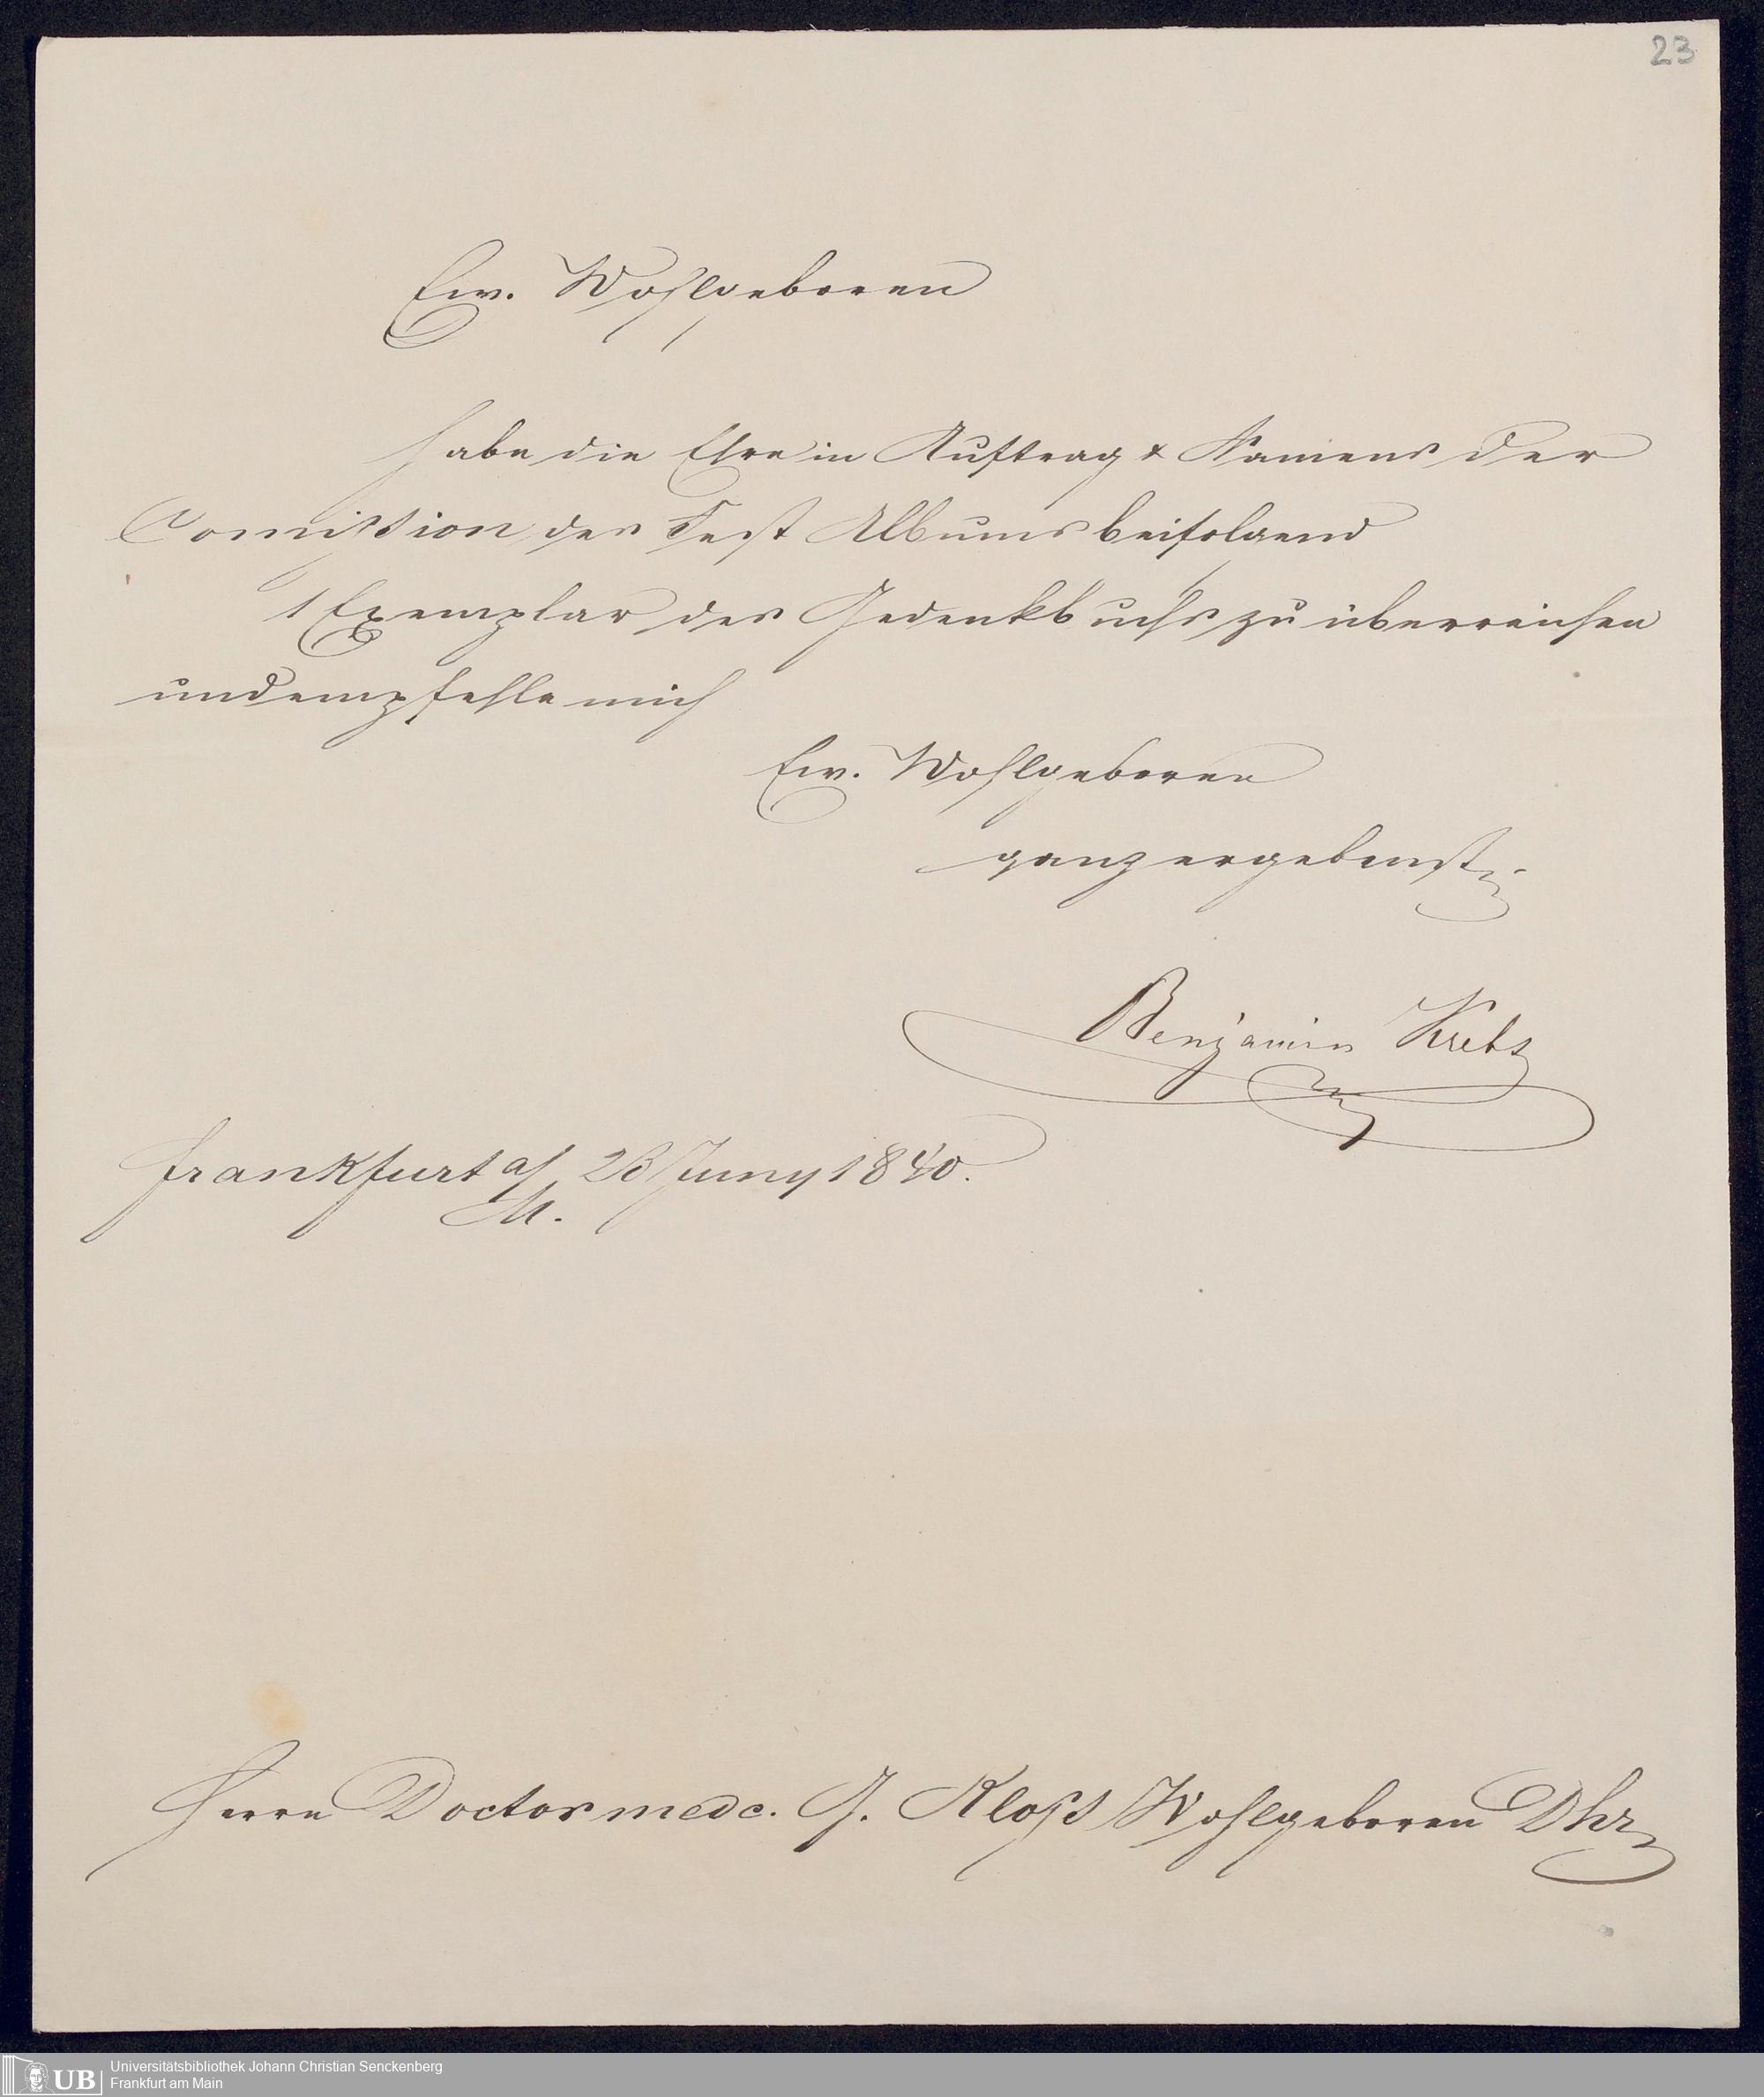 23
Ew. Wohlgeboren
habe die Ehre in Auftrag & Namens der
Comission des Fest Albums beifolgend
1 Exemplar des Gedenkbuchs zu überreichen
und empfehle mich
Ew. Wohlgeboren
ganz ergebenst
Benjamin Krebs
Frankfurt a/
M. 23 Juny 1840.
Herrn Doctor medc. G. Kloss Wohlgeboren Dhr
UB Universitätsbibliothek Johann Christian Senckenberg
Frankfurt am Main